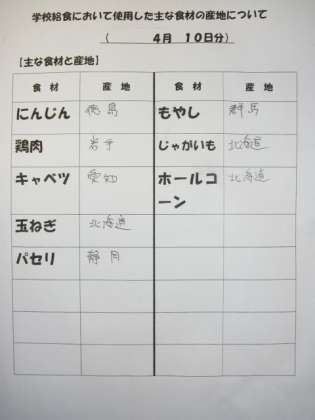 学校給食において使用した主な食材の産地について
（　　　４月　１０日分）
【主な食材と産地】
食材　産地　食材　産地
にんじん　徳島　もやし　群馬
鶏肉　岩手　じゃがいも　北海道
キャベツ　愛知　ホールコーン　北海道
玉ねぎ　北海道
パセリ　静岡